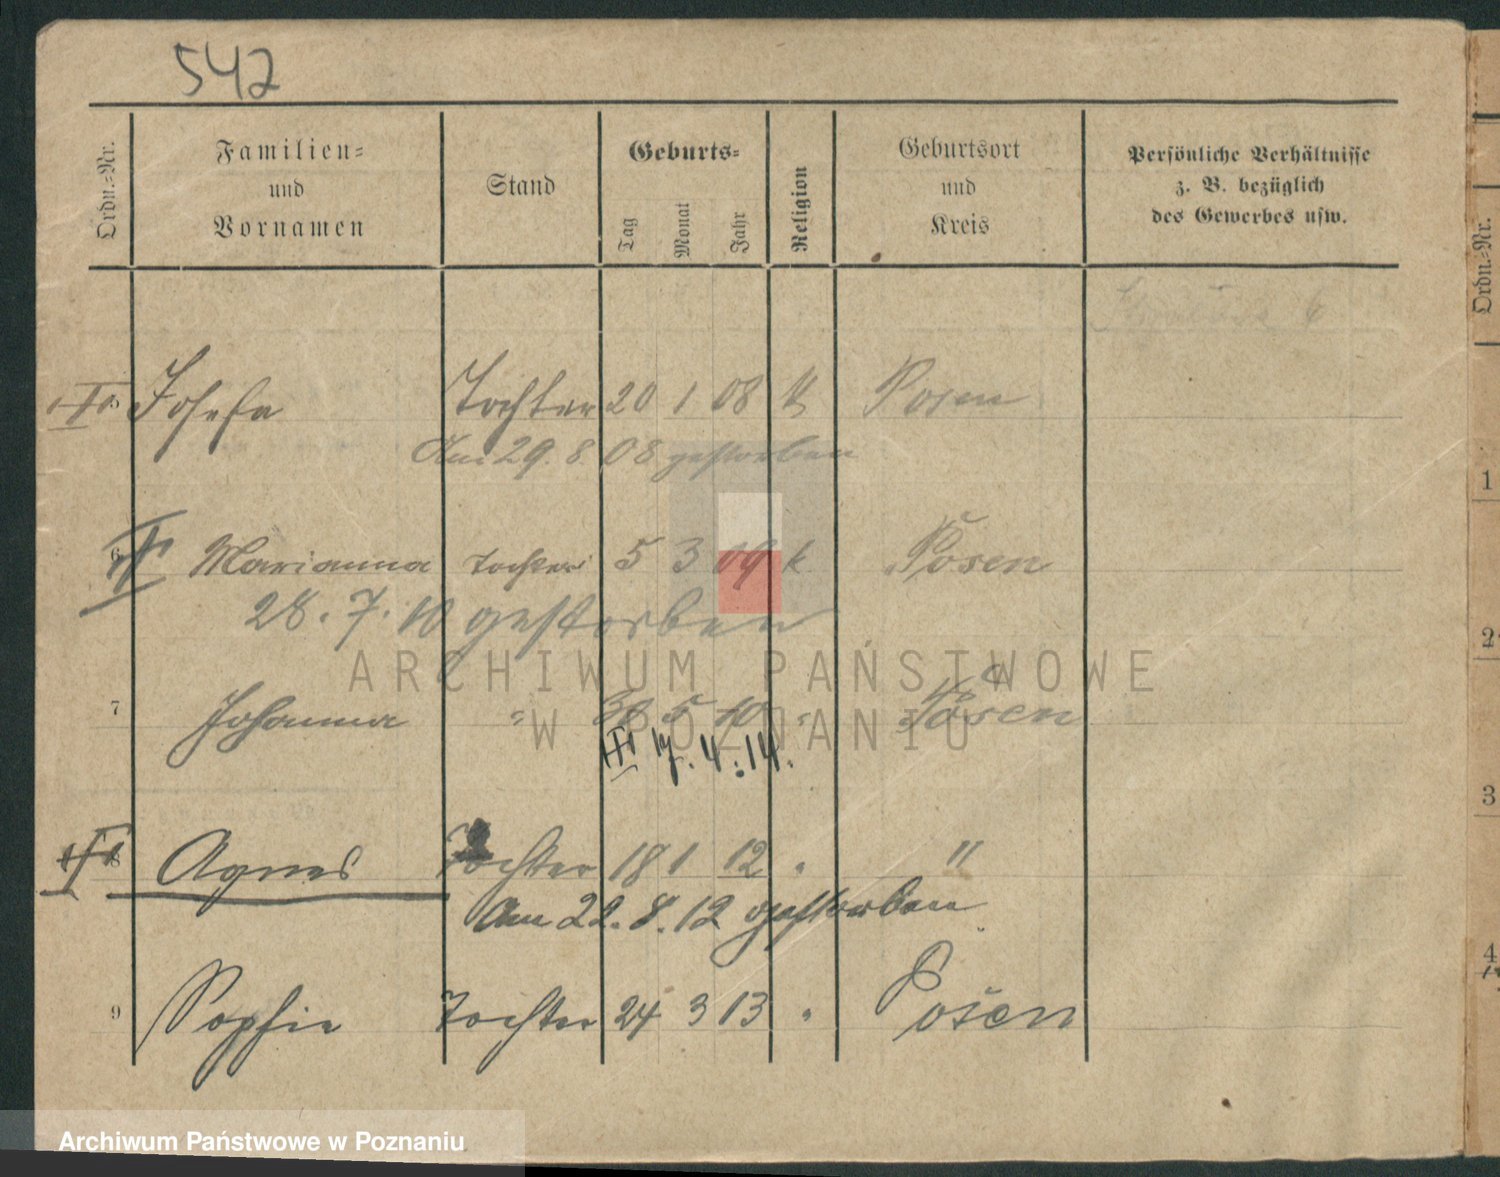 542
Ordn.-Nr.
Familien-
und
Vornamen
Stand
Geburts-
Tag
Monat
Jahr
Religion
Geburtsort
und
Kreis
Persönliche Verhältnisse
z. B. bezüglich
des Gewerbes usw.
Ordn.-Nr.
Josefa Tochter 20 1 08 k Posen
Am 29. 8 08 gestorben
6 Marianna Tochter 5 3 09 k Posen
28. 7. 10 gestorben
ARCHIWUM PAŃSTWOWE
W POZNANIU
7 Johanna " 5 10 " Posen
17. 4. 14.
8 Agnes Tochter 18 1 12 " "
Am 22. 8. 12 gestorben
9 Sophie Tochter 24 3 13 " Posen
1
2
3
4
Archiwum Państwowe w Poznaniu